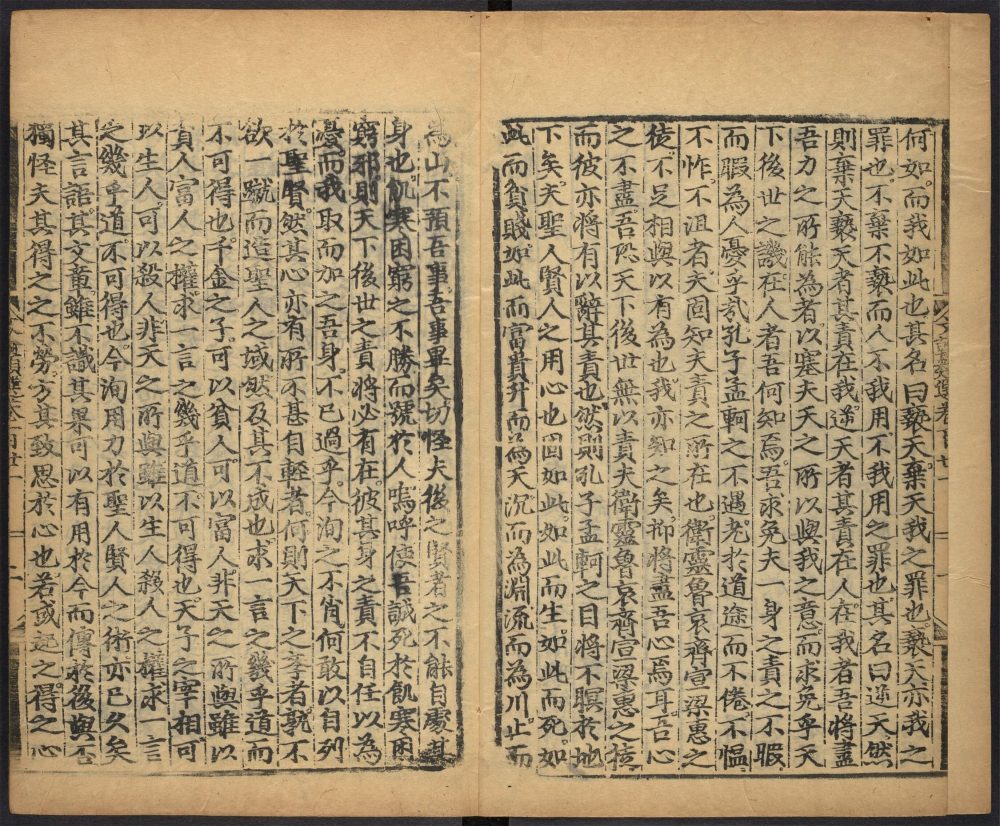 何如而我如此也其名曰褻天棄天我之罪也褻天亦我之
罪也不棄不褻而人不我用不我用之罪也其名曰逆天然
則棄天褻天者其責在我逆天者其責在人在我者吾將盡
吾力之所能為者以塞夫天之所以與我之意而求免乎天
下後世之譏在人者吾何知焉吾求免夫一身之責之不暇
而暇為人憂乎哉孔子孟軻之不遇老於道途而不倦不慍
不怍不沮者夫固知夫責之所在也衛靈魯哀齊宣梁惠之
徒不足相與以有為也我亦知之矣抑將盡吾心焉耳吾心
之不盡吾恐天下後世無以責夫衛靈魯哀齊宣梁惠之徒
而彼亦將有以辭其責也然則孔子孟軻之目將不瞑於地
下矣夫聖人賢人之用心也固如此如此而生如此而死如
此而貧賤如此而富貴升而為天沉而為淵流而為川止而
為山不預吾事吾事畢矣切怪夫後之賢者之不能自處其
身也飢寒困窮之不勝而號於人嗚呼使吾誠死於飢寒困
窮邪則天下後世之責將必有在彼其身之責不自任以為
憂而我取而加之吾身不已過乎今洵之不肖何敢以自列
於聖賢然其心亦有所不甚自輕者何則天下之學者孰不
欲一蹴而造聖人之域然及其不成也求一言之幾乎道而
不可得也千金之子可以貧人可以富人非天之所與雖以
貧人富人之權求一言之幾乎道不可得也天子之宰相可
以生人可以殺人非天之所與雖以生人殺人之權求一言
之幾乎道不可得也今洵用力於聖人賢人之術亦已久矣
其言語其文章雖不識其果可以有用於今而傳於後與否
獨怪夫其得之之不勞方其致思於心也若或起之得之心